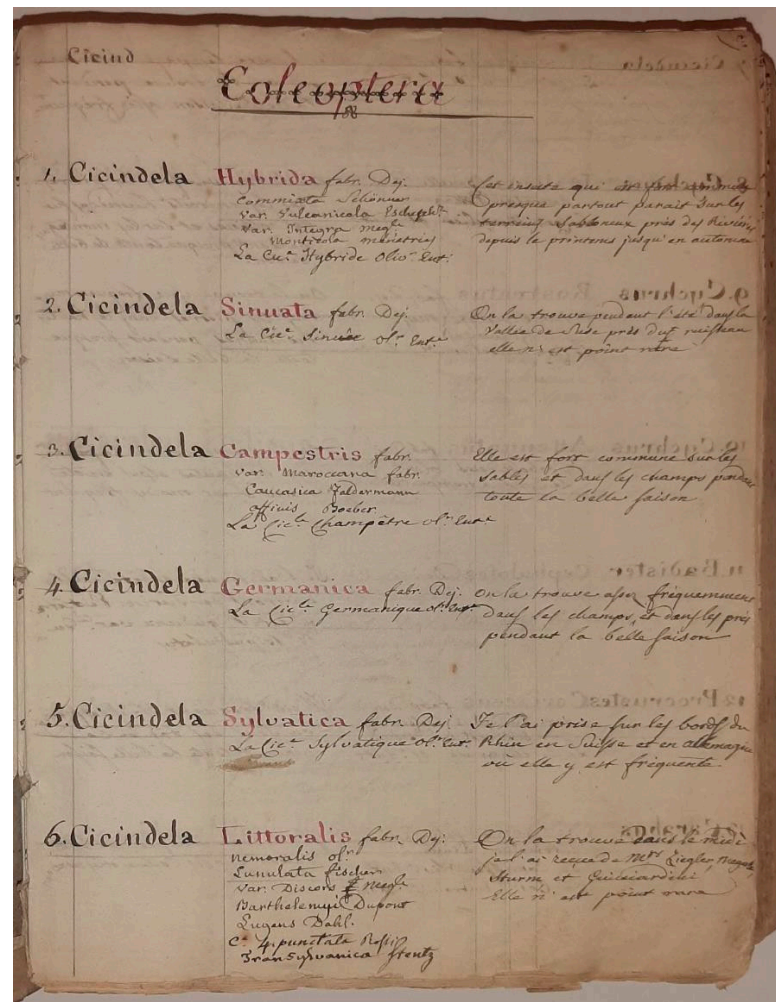 Cicind
Coleoptera
1. Cicindela Hybrida fabr. Dej.
Commixta Schönner
Var. Integra Megle
Monticola menetries
La Cic. Hybride Oliv. Ent.
Cet insecte qui est fort commun
presque partout parait Sur les
terreins Sabloneux près des Rivières
depuis le printems jusqu'en automne
2. Cicindela Sinuata fabr. Dej.
La Cic. Sinuée ol. Ent.
On la trouve pendant l'été dans la
Vallée de près d'un ruisseau
elle n'est point rare
3. Cicindela Campestris fabr.
Var. Maroccana fabr.
Caucasica Faldermann
affinis Boeber.
La Cic. Champêtre ol. Ent.
Elle est fort commune sur les
Sables et dans les champs pendant
toute la belle saison
4. Cicindela Germanica fabr. Dej.
La Cic. Germanique ol. Ent.
on la trouve assez fréquemment
dans les champs, et dans les prés
pendant la belle saison
5. Cicindela Sylvatica fabr. Dej.
La Cic. Sylvatique ol. Ent.
Je l'ai prise sur les bords du
Rhin en Suisse et en allemagne
où elle y est fréquente
6. Cicindela Littoralis fabr. Dej.
nemoralis ol.
Lunulata fischer
Var. Discors Megle
Barthelemyi Dupont
Lugens Dahl.
C. 4. punctata Rossi
Transylvanica Stentz
On la trouve dans le midi
je l'ai reçue de Mrs Ziegler, Megerle
Sturm et
Elle n'est point rare